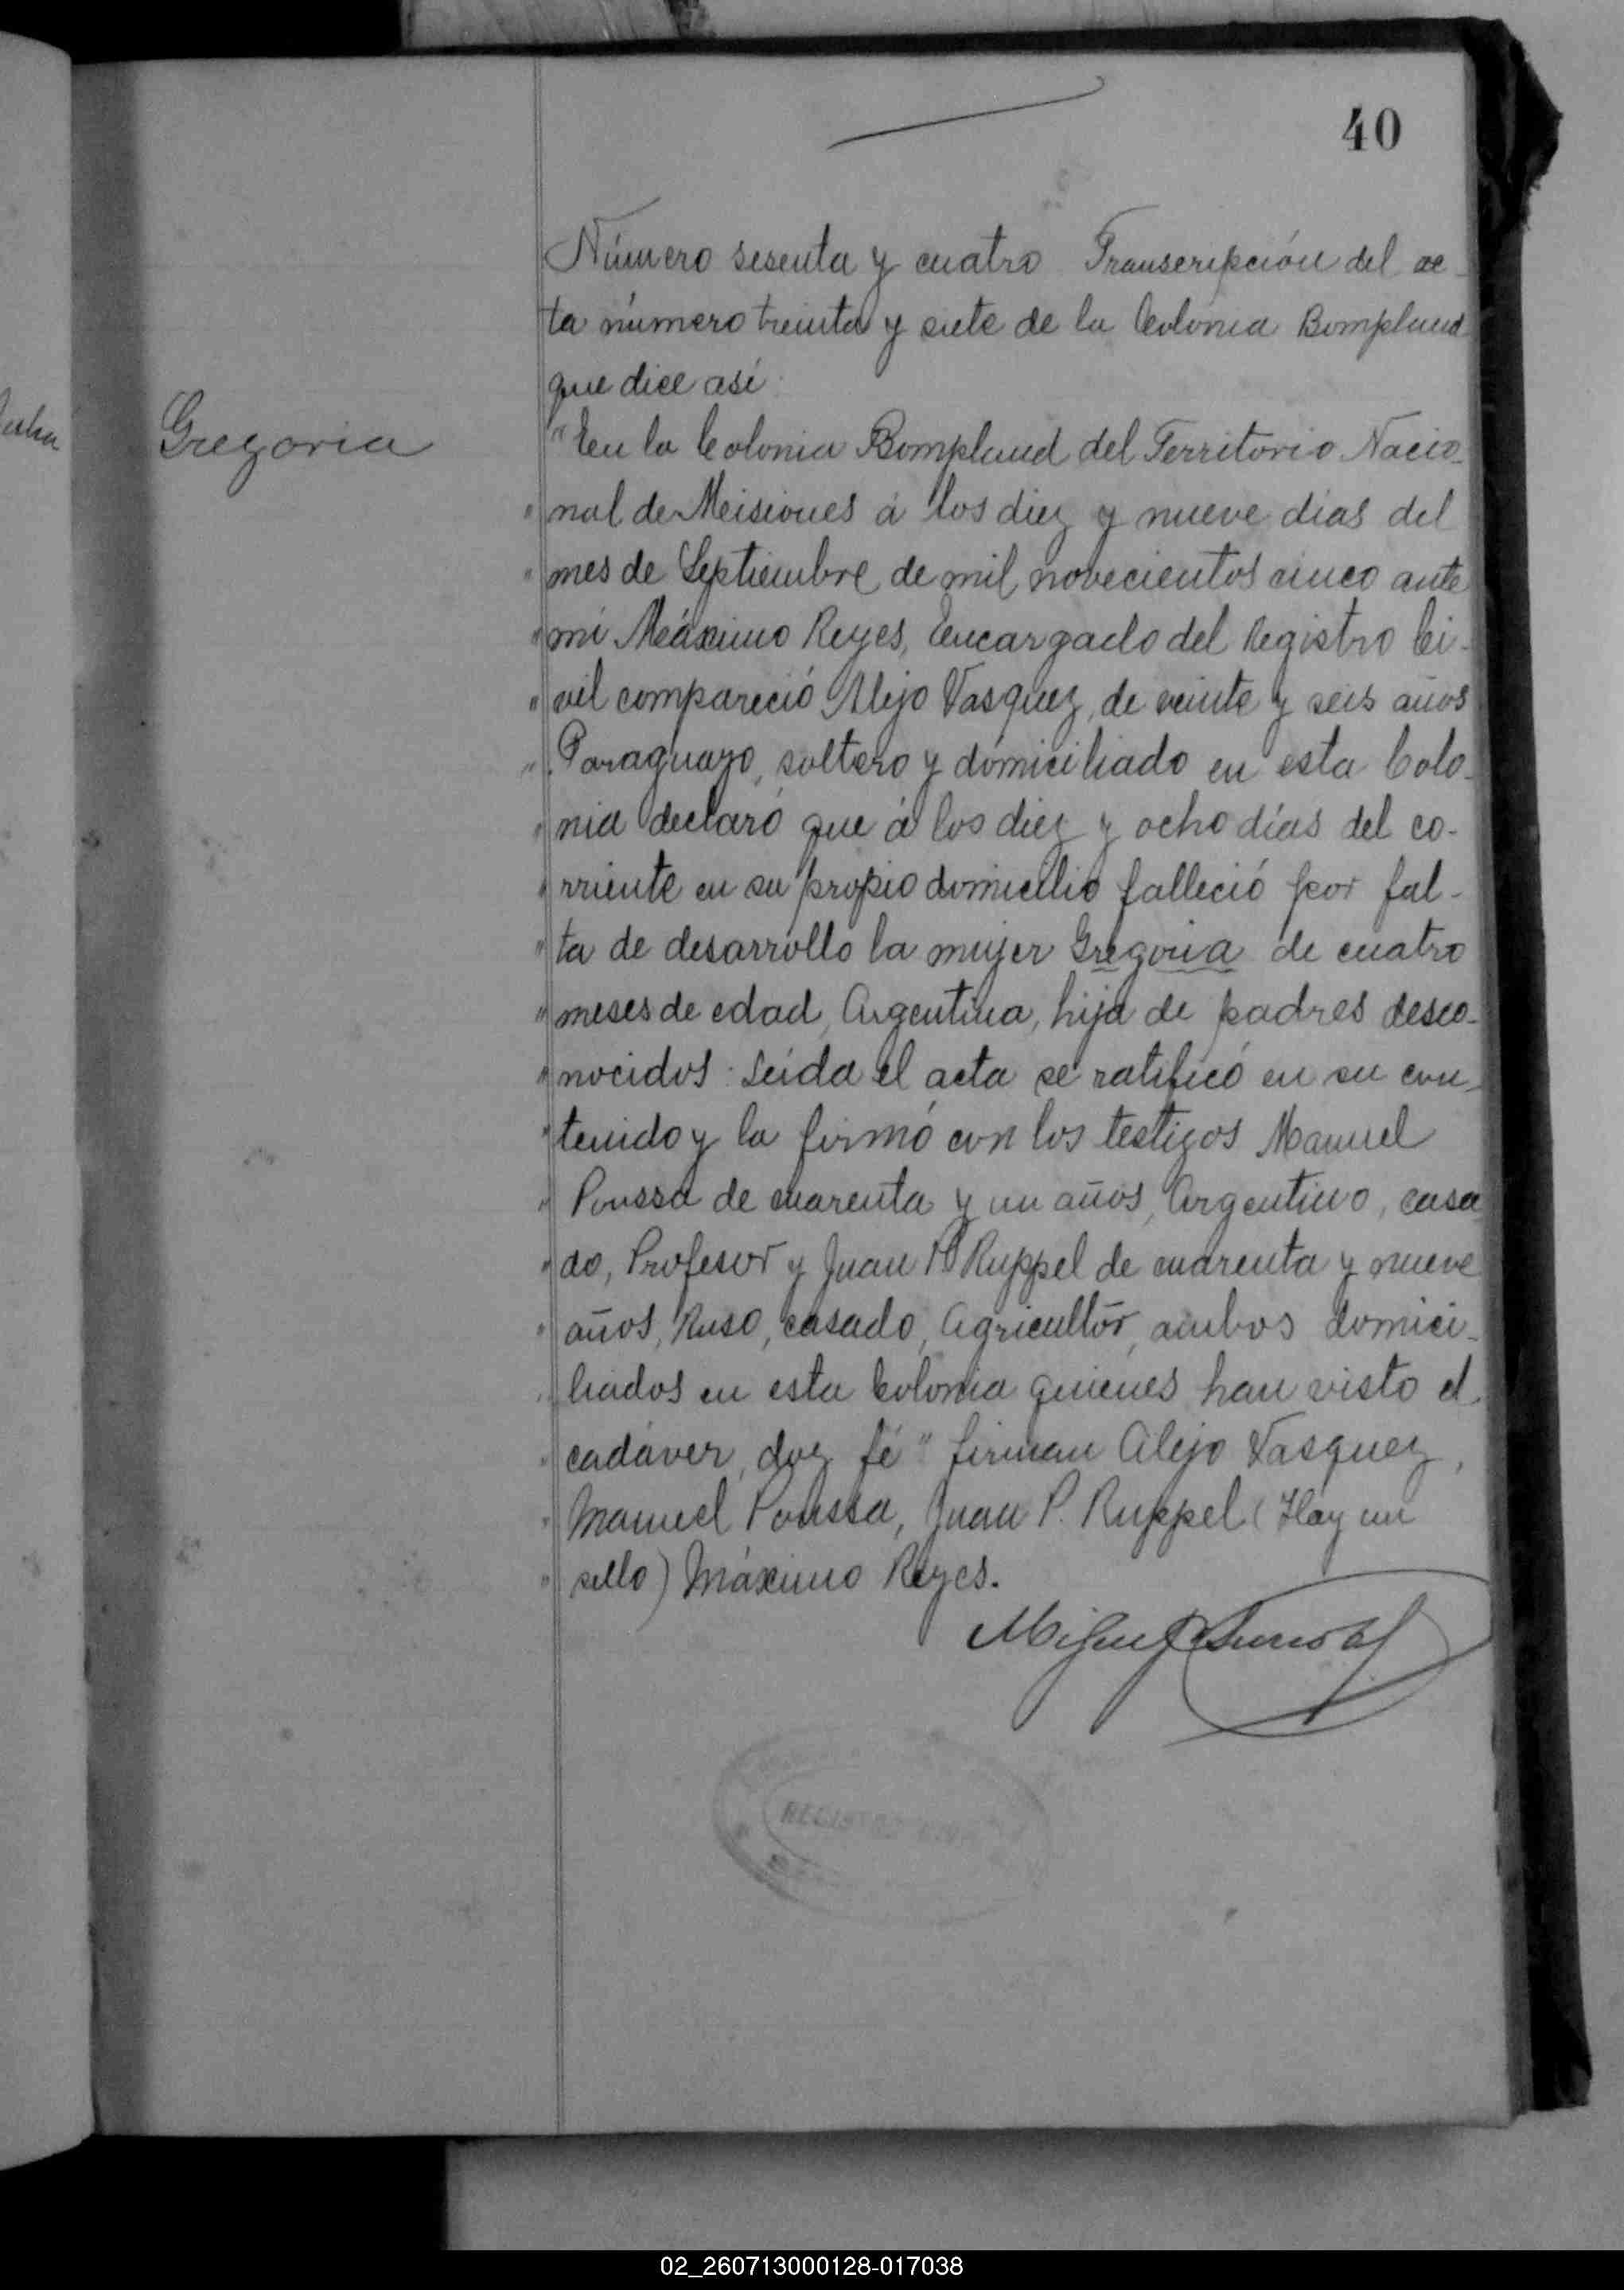 40
Número sesenta y cuatro Transcripción del ac-
ta número treinta y siete de la Colonia Bompland
que dice así
Gregoria
"En la Colonia Bompland del Territorio Nacio-
" nal de Misiones á los diez y nueve días del
" mes de Septiembre de mil novecientos cinco ante
" mí Máximo Reyes, Encargado del Registro Ci-
" vil compareció Alejo Vasquez, de veinte y seis años
" Paraguayo, soltero y domiciliado en esta Colo-
" nia declaró que á los diez y ocho días del co-
" rriente en su propio domicilio falleció por fal-
" ta de desarrollo la mujer Gregoria de cuatro
" meses de edad, Argentina, hija de padres desco-
" nocidos. Leída el acta se ratificó en su con-
" tenido y la firmó con los testigos Manuel
" Poussa de cuarenta y un años, Argentino, casa
" do, Profesor y Juan P Ruppel de cuarenta y nueve
" años, Ruso, casado, Agricultor, ambos domici-
" liados en esta Colonia quienes han visto el
" cadáver, doy fé" firman Alejo Vasquez,
" Manuel Poussa, Juan P. Ruppel (Hay un
" sello) Máximo Reyes.
REGISTRO CIVIL
02_260713000128-017038